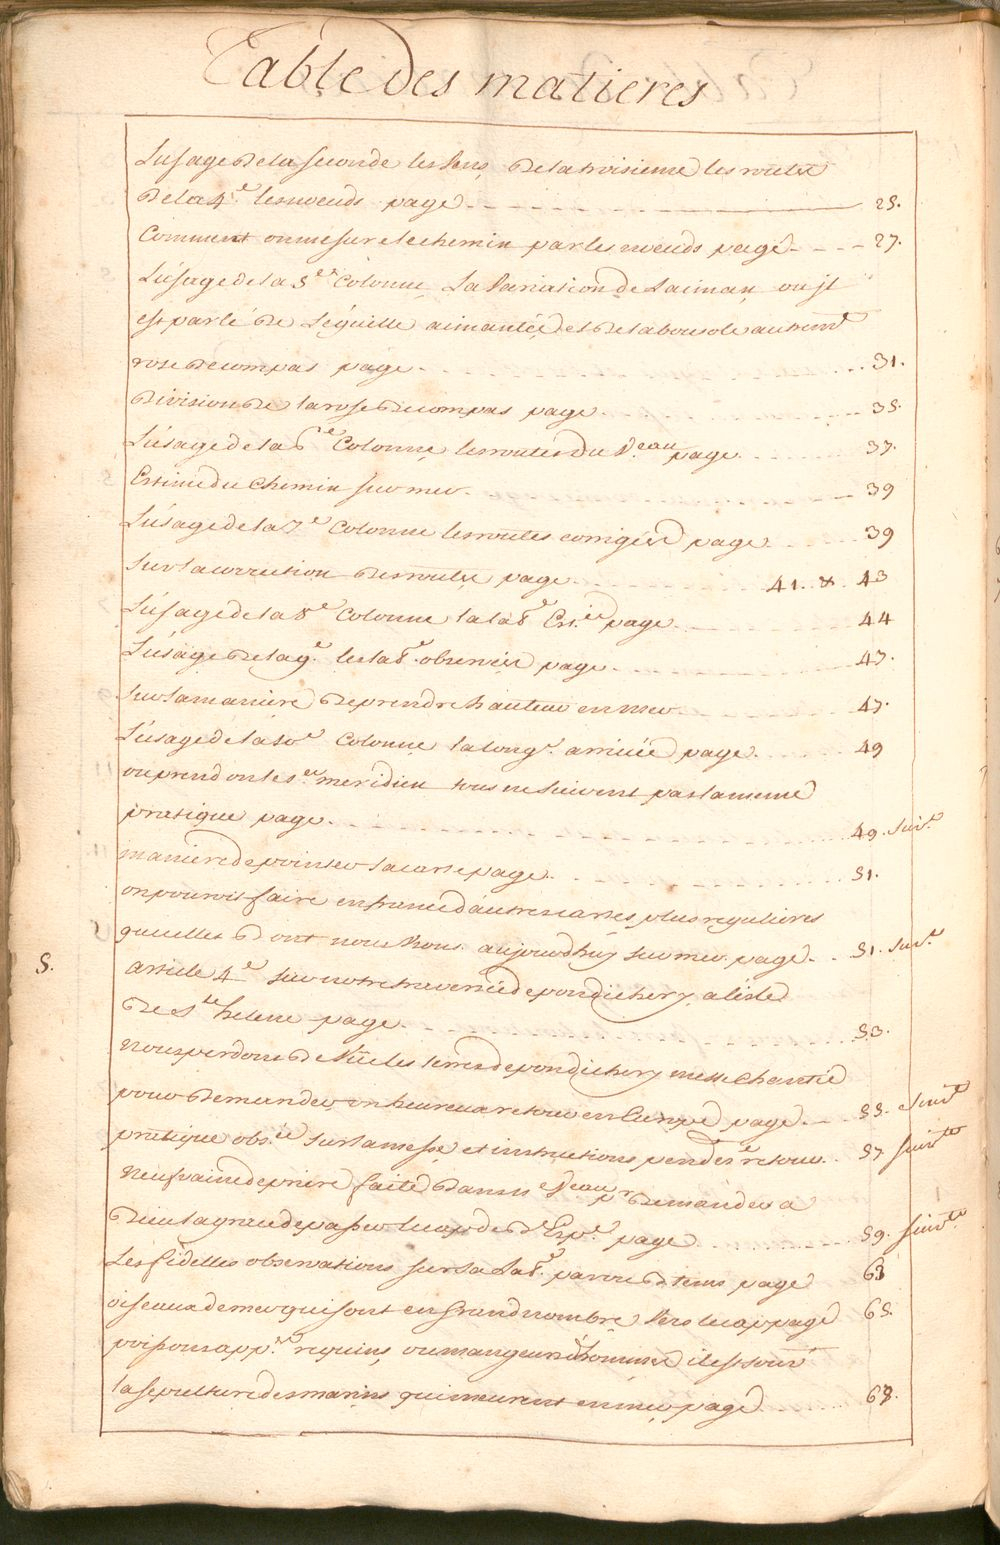 Table des matieres
L'usage de la seconde les Vens de la troisieme les routes
de la 4.e les noeuds page 25.
Comment on mesure le chemin par les noeuds page 27.
L'usage de la 5.e Colonne La Variation de Laiman ou jl
est parlé de L'éguille aimantée, et de la bousole autremt
rose de compas page 31.
division de la rose de compas page 35.
L'usage de la 6.e Colonne les routes du V.eau page 37.
Estime du Chemin sur mer 39
L'usage de la 7.e Colonne les routes corrigées page 39
sur la correction des routes page 41. & 43
L'usage de la 8.e Colonne la lat Est.ée page 44
L'usage de la 9.e les lat. observées page 47.
sur la maniere de prendre hauteur en mer 47.
L'usage de la 10.e Colonne la long.e arrivée page 49
ou prend on le p.er meridien tous ne suivent pas la meme
pratique page 49. suiv.e
maniere de pointer la carte page 51.
on pouroit faire en france d'autres cartes plus regulieres
que celles dont nous nous aujourdhuy sur mer page 51. suiv.e
S.
article 4.e sur notre traversée de pondichery a lisle
de S.te helene page 53.
nous perdons de Vüe les terres de pondichery messe Chantée
pour demander un heureux retour en Europe page 55. suiv.te
pratique obs.ée sur la messe et instructions pend.t le retour 57 suiv.te
neufvaine de priere faite dans n.e V.eau p.r demander a
dieu la grace de passer le cap de B.e Esp.ce page 59. suiv.te
Les fidelles observations sur la Lat. par ou de tems page 63
oiseaux de mer qui sont en grand nombre Vers le cap page 65.
poissons app.és requins, ou mangeurs d'hommes ils sont
la sepulture des marins qui meurent en mer page 67.